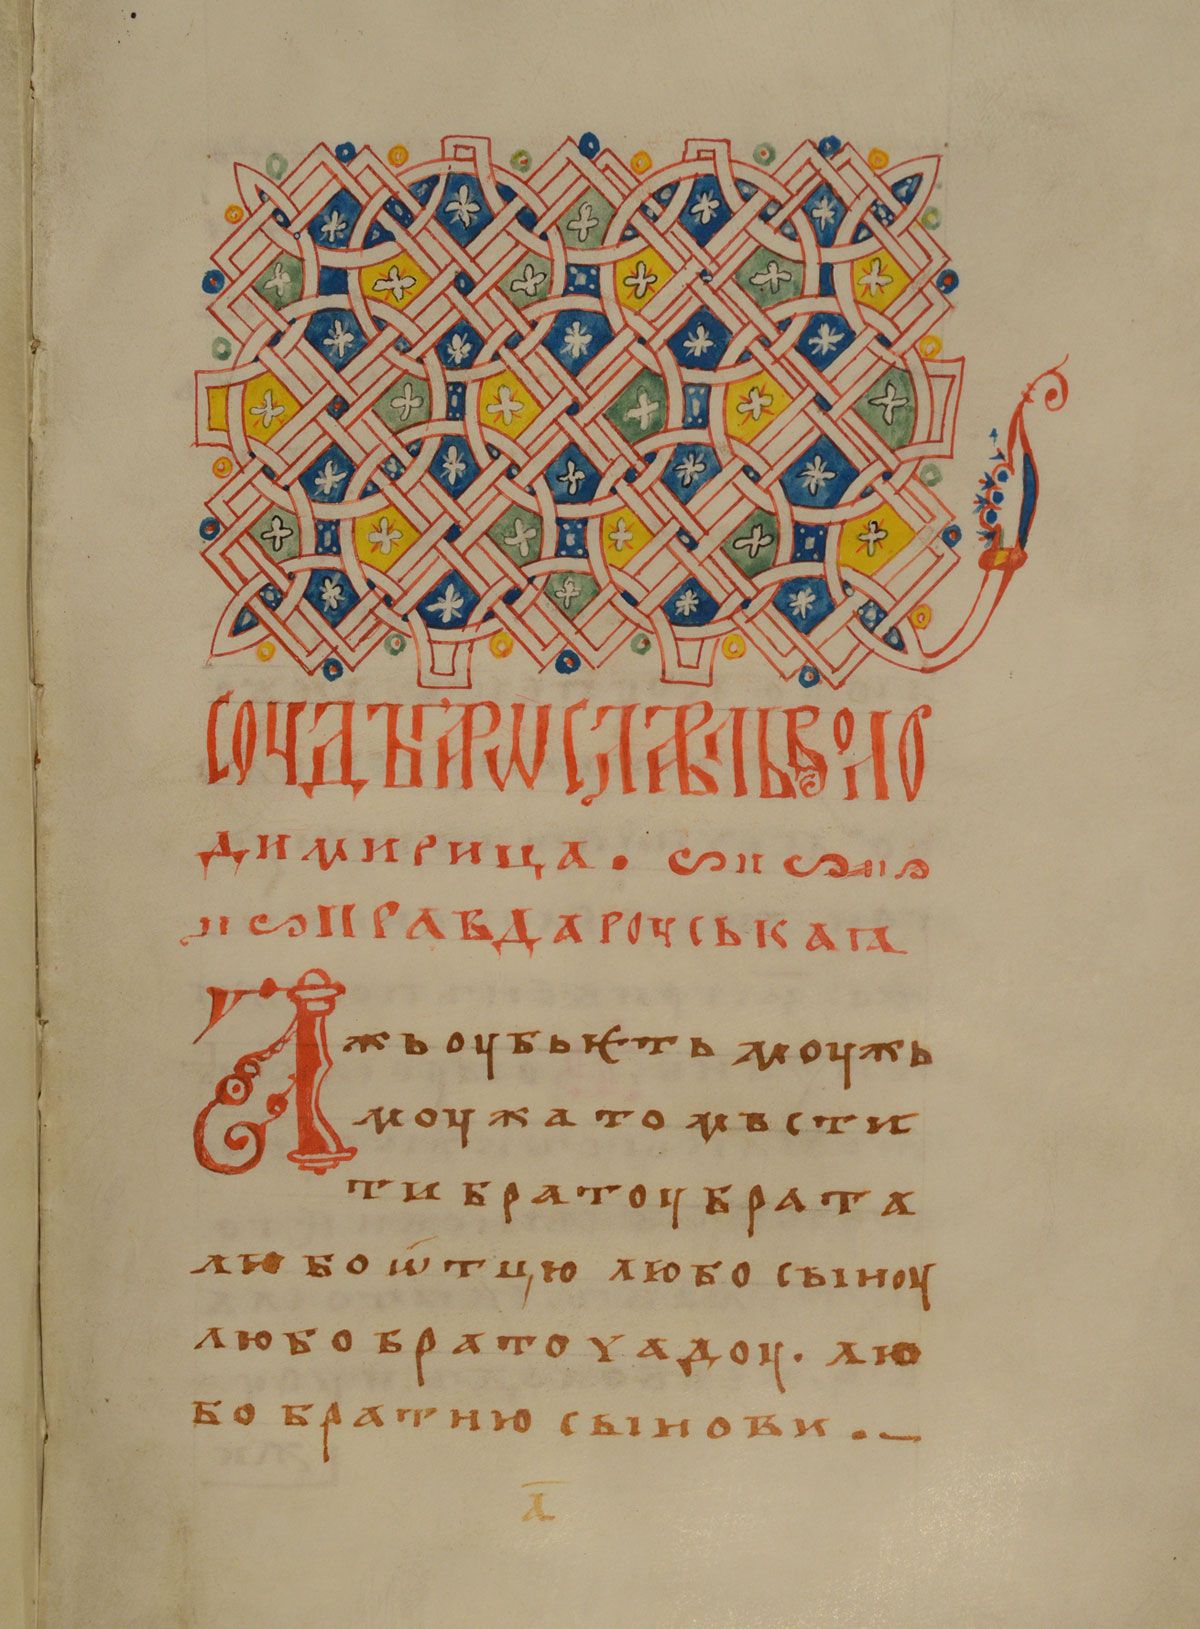 СОУДЪꙖРОСЛАВЛЬВОЛО
ДИМИРИЦА.
ПРАВДАРОУСЬКАꙖ
АЖЬОУБЬѤТЬ МОУЖЬ
МОУЖАТОМЬСТИ
ТИБРАТОУБРАТА
ЛЮБОѾТЦЮ ЛЮБОСЫНОУ
ЛЮБОБРАТОЧАДОУ. ЛЮ
БОБРАТНЮСЫНОВИ.
А҃